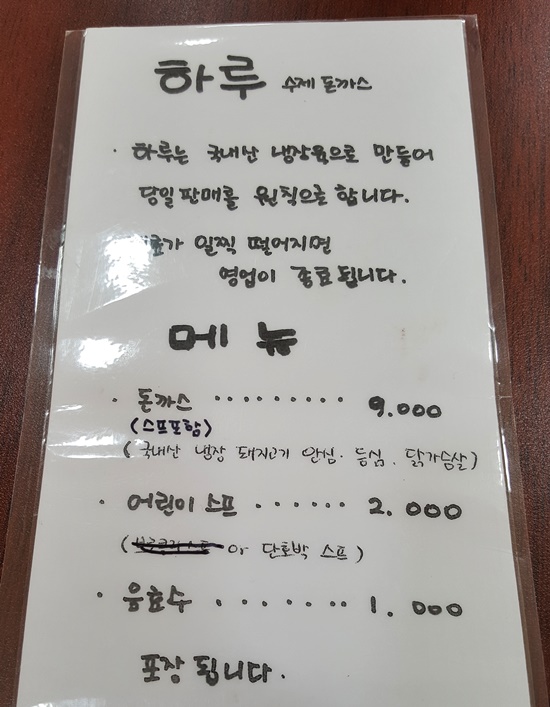 하루 수제 돈까스
· 하루는 국내산 냉장육으로 만들어
당일 판매를 원칙으로 합니다.
일찍 떨어지면
영업이 종료 됩니다.
메뉴
· 돈까스 ········· 9.000
(스프포함)
(국내산 냉장 돼지고기 안심 · 등심 . 닭가슴살)
· 어린이 스프 ······ 2.000
( or 단호박 스프)
· 음효수 ······· 1.000
포장 됩니다.